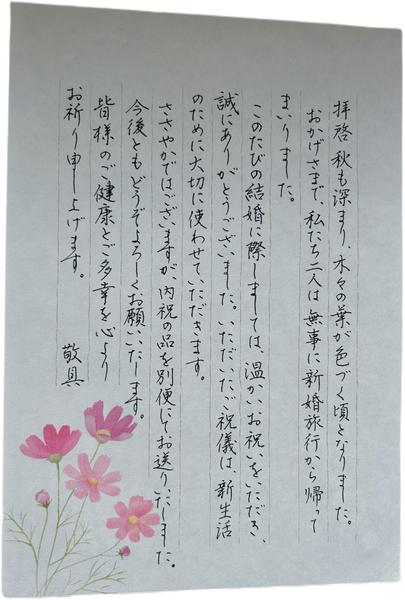 拝啓 秋も深まり、木々の葉が色づく頃となりました。
おかげさまで、私たち二人は無事に新婚旅行から帰って
まいりました。
このたびの結婚に際しましては、温かいお祝いをいただき、
誠にありがとうございました。いただいたご祝儀は、新生活
のために大切に使わせていただきます。
ささやかではございますが、内祝の品を別便にてお送りいたしました。
今後ともどうぞよろしくお願いいたします。
皆様のご健康とご多幸を心より
お祈り申し上げます。
敬具